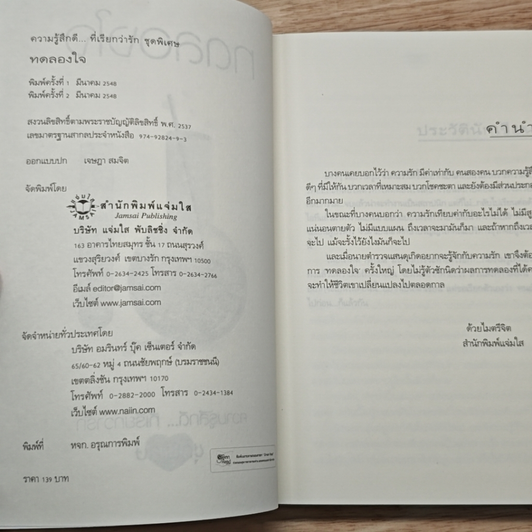 ความรู้สึกดี... ที่เรียกว่ารัก ชุดพิเศษ
ทดลองใจ
พิมพ์ครั้งที่ 1 มีนาคม 2548
พิมพ์ครั้งที่ 2 มีนาคม 2548
สงวนลิขสิทธิ์ตามพระราชบัญญัติลิขสิทธิ์ พ.ศ. 2537
เลขมาตรฐานสากลประจำหนังสือ 974-92824-9-3
ออกแบบปก เจษฎา สมจิต
จัดพิมพ์โดย
สำนักพิมพ์แจ่มใส
Jamsai Publishing
บริษัท แจ่มใส พับลิชชิ่ง จำกัด
163 อาคารไทยสมุทร ชั้น 17 ถนนสุรวงศ์
แขวงสุริยวงศ์ เขตบางรัก กรุงเทพฯ 10500
โทรศัพท์ 0-2634-2425 โทรสาร 0-2634-2766
อีเมล์ editor@jamsai.com
เว็บไซต์ www.jamsai.com
จัดจำหน่ายทั่วประเทศโดย
บริษัท อมรินทร์ บุ๊ค เซ็นเตอร์ จำกัด
65/60-62 หมู่ 4 ถนนชัยพฤกษ์ (บรมราชชนนี)
เขตตลิ่งชัน กรุงเทพฯ 10170
โทรศัพท์ 0-2882-2000 โทรสาร 0-2434-1384
เว็บไซต์ www.naiin.com
พิมพ์ที่ หจก. อรุณการพิมพ์
ราคา 139 บาท
คำนำ
บางคนเคยบอกไว้ว่า ความรัก มีค่าเท่ากับ คนสองคน บวกความรู้สึก
ดีๆ ที่มีให้กัน บวกเวลาที่เหมาะสม บวกโชคชะตา และยังต้องมีส่วนประกอบ
อีกมากมาย
ในขณะที่บางคนบอกว่า ความรักเทียบค่ากับอะไรไม่ได้ ไม่มีสูตร
แน่นอนตายตัว ไม่มีแบบแผน ถึงเวลาจะมามันก็มา และถ้าหากถึงเวลา
จะไป แม้จะรั้งไว้ยังไงมันก็จะไป
และเมื่อนายตำรวจแสนดุเกิดอยากจะรู้จักกับความรัก เขาจึงต้อง
การ ทดลองใจ ครั้งใหญ่ โดยไม่รู้ตัวซักนิดว่าผลการทดลองที่ได้
จะทำให้ชีวิตเขาเปลี่ยนแปลงไปตลอดกาล
ด้วยไมตรีจิต
สำนักพิมพ์แจ่มใส